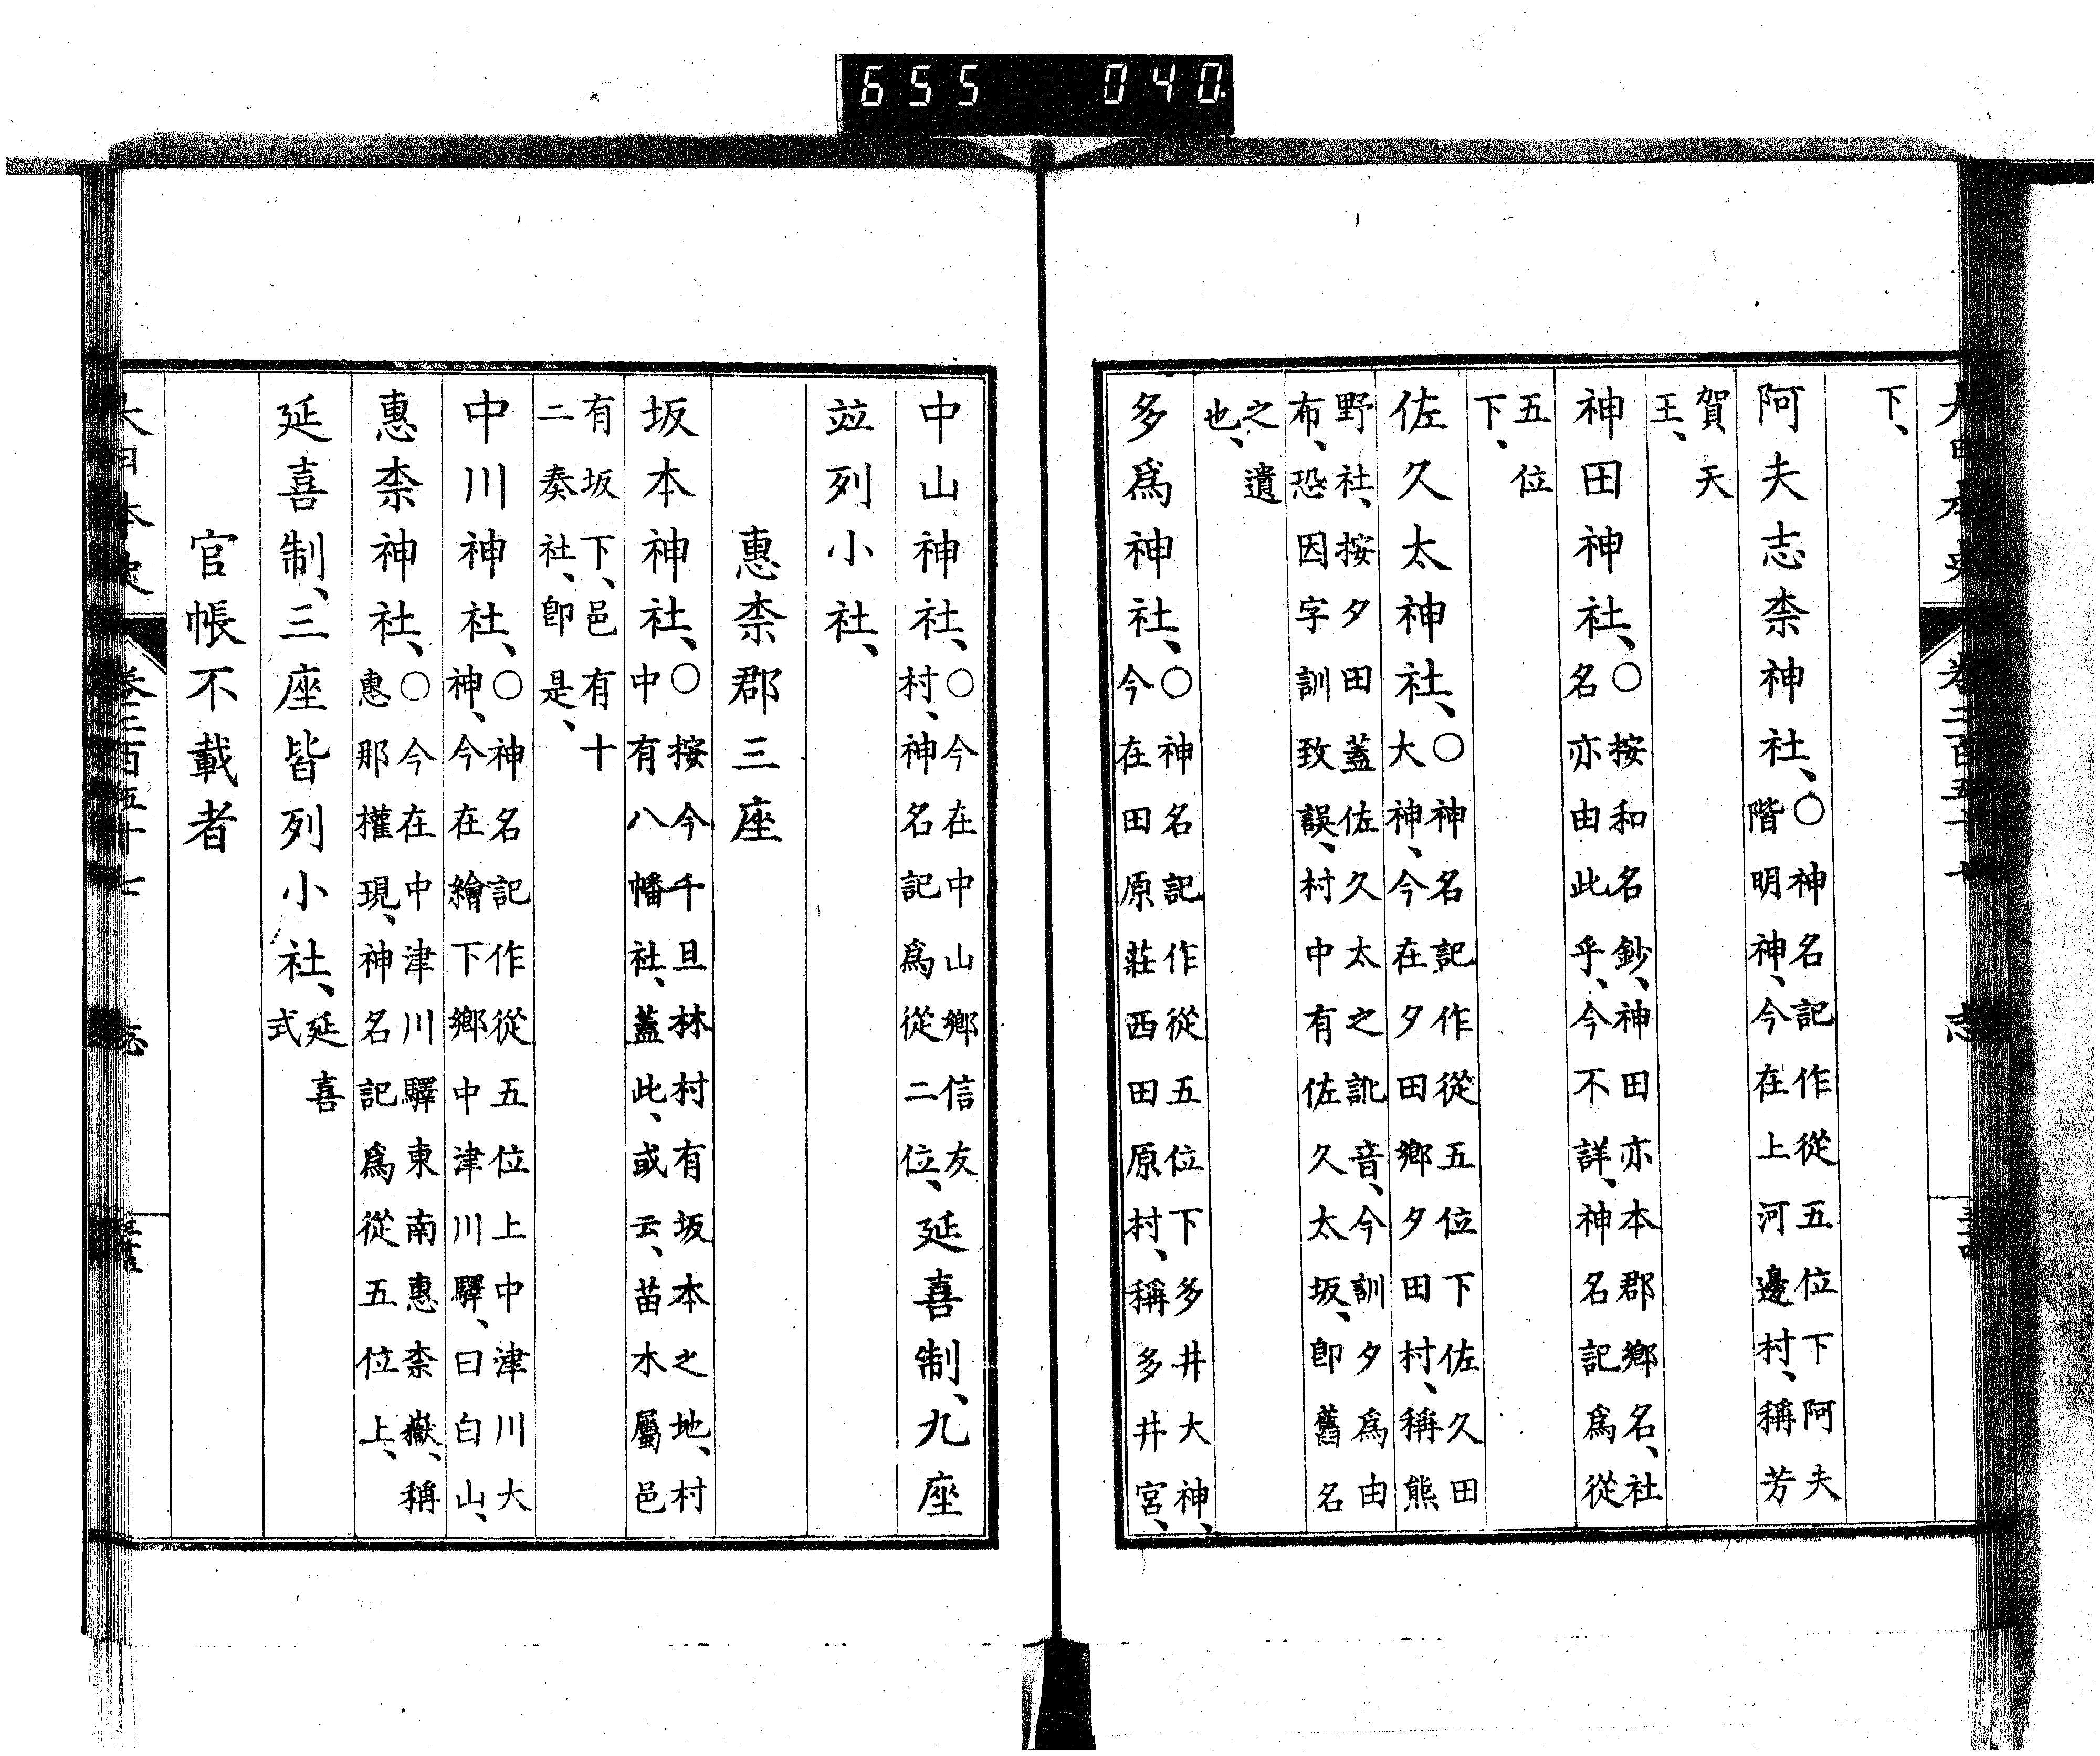 655 040
大日本史 卷二百五十七 志
下、
阿夫志柰神社、○神名記作從五位下阿夫
階明神、今在上河邊村、稱芳
賀天
王、
神田神社、○按和名鈔、神田亦本郡鄉名、社
名亦由此乎、今不詳、神名記爲從
五位
下、
佐久太神社、○神名記作從五位下佐久田
大神、今在夕田鄉夕田村、稱熊
野社、按夕田蓋佐久太之訛音、今訓夕爲由
布、恐因字訓致誤、村中有佐久太坂、卽舊名
之遺
也、
多爲神社、○神名記作從五位下多井大神、
今在田原莊西田原村、稱多井宮、
中山神社、○今在中山鄉信友
村、神名記爲從二位、延喜制、九座
竝列小社、
惠柰郡三座
坂本神社、○按今千旦林村有坂本之地、村
中有八幡社、蓋此、或云、苗木屬邑
有坂下、邑有十
二奏社、卽是、
中川神社、○神名記作從五位上中津川大
神、今在繪下鄉中津川驛、曰白山、
惠柰神社、○今在中津川驛東南惠柰嶽、稱
惠那權現、神名記爲從五位上、
延喜制、三座皆列小社、延喜
式
官帳不載者
大日本史 卷二百五十七 志